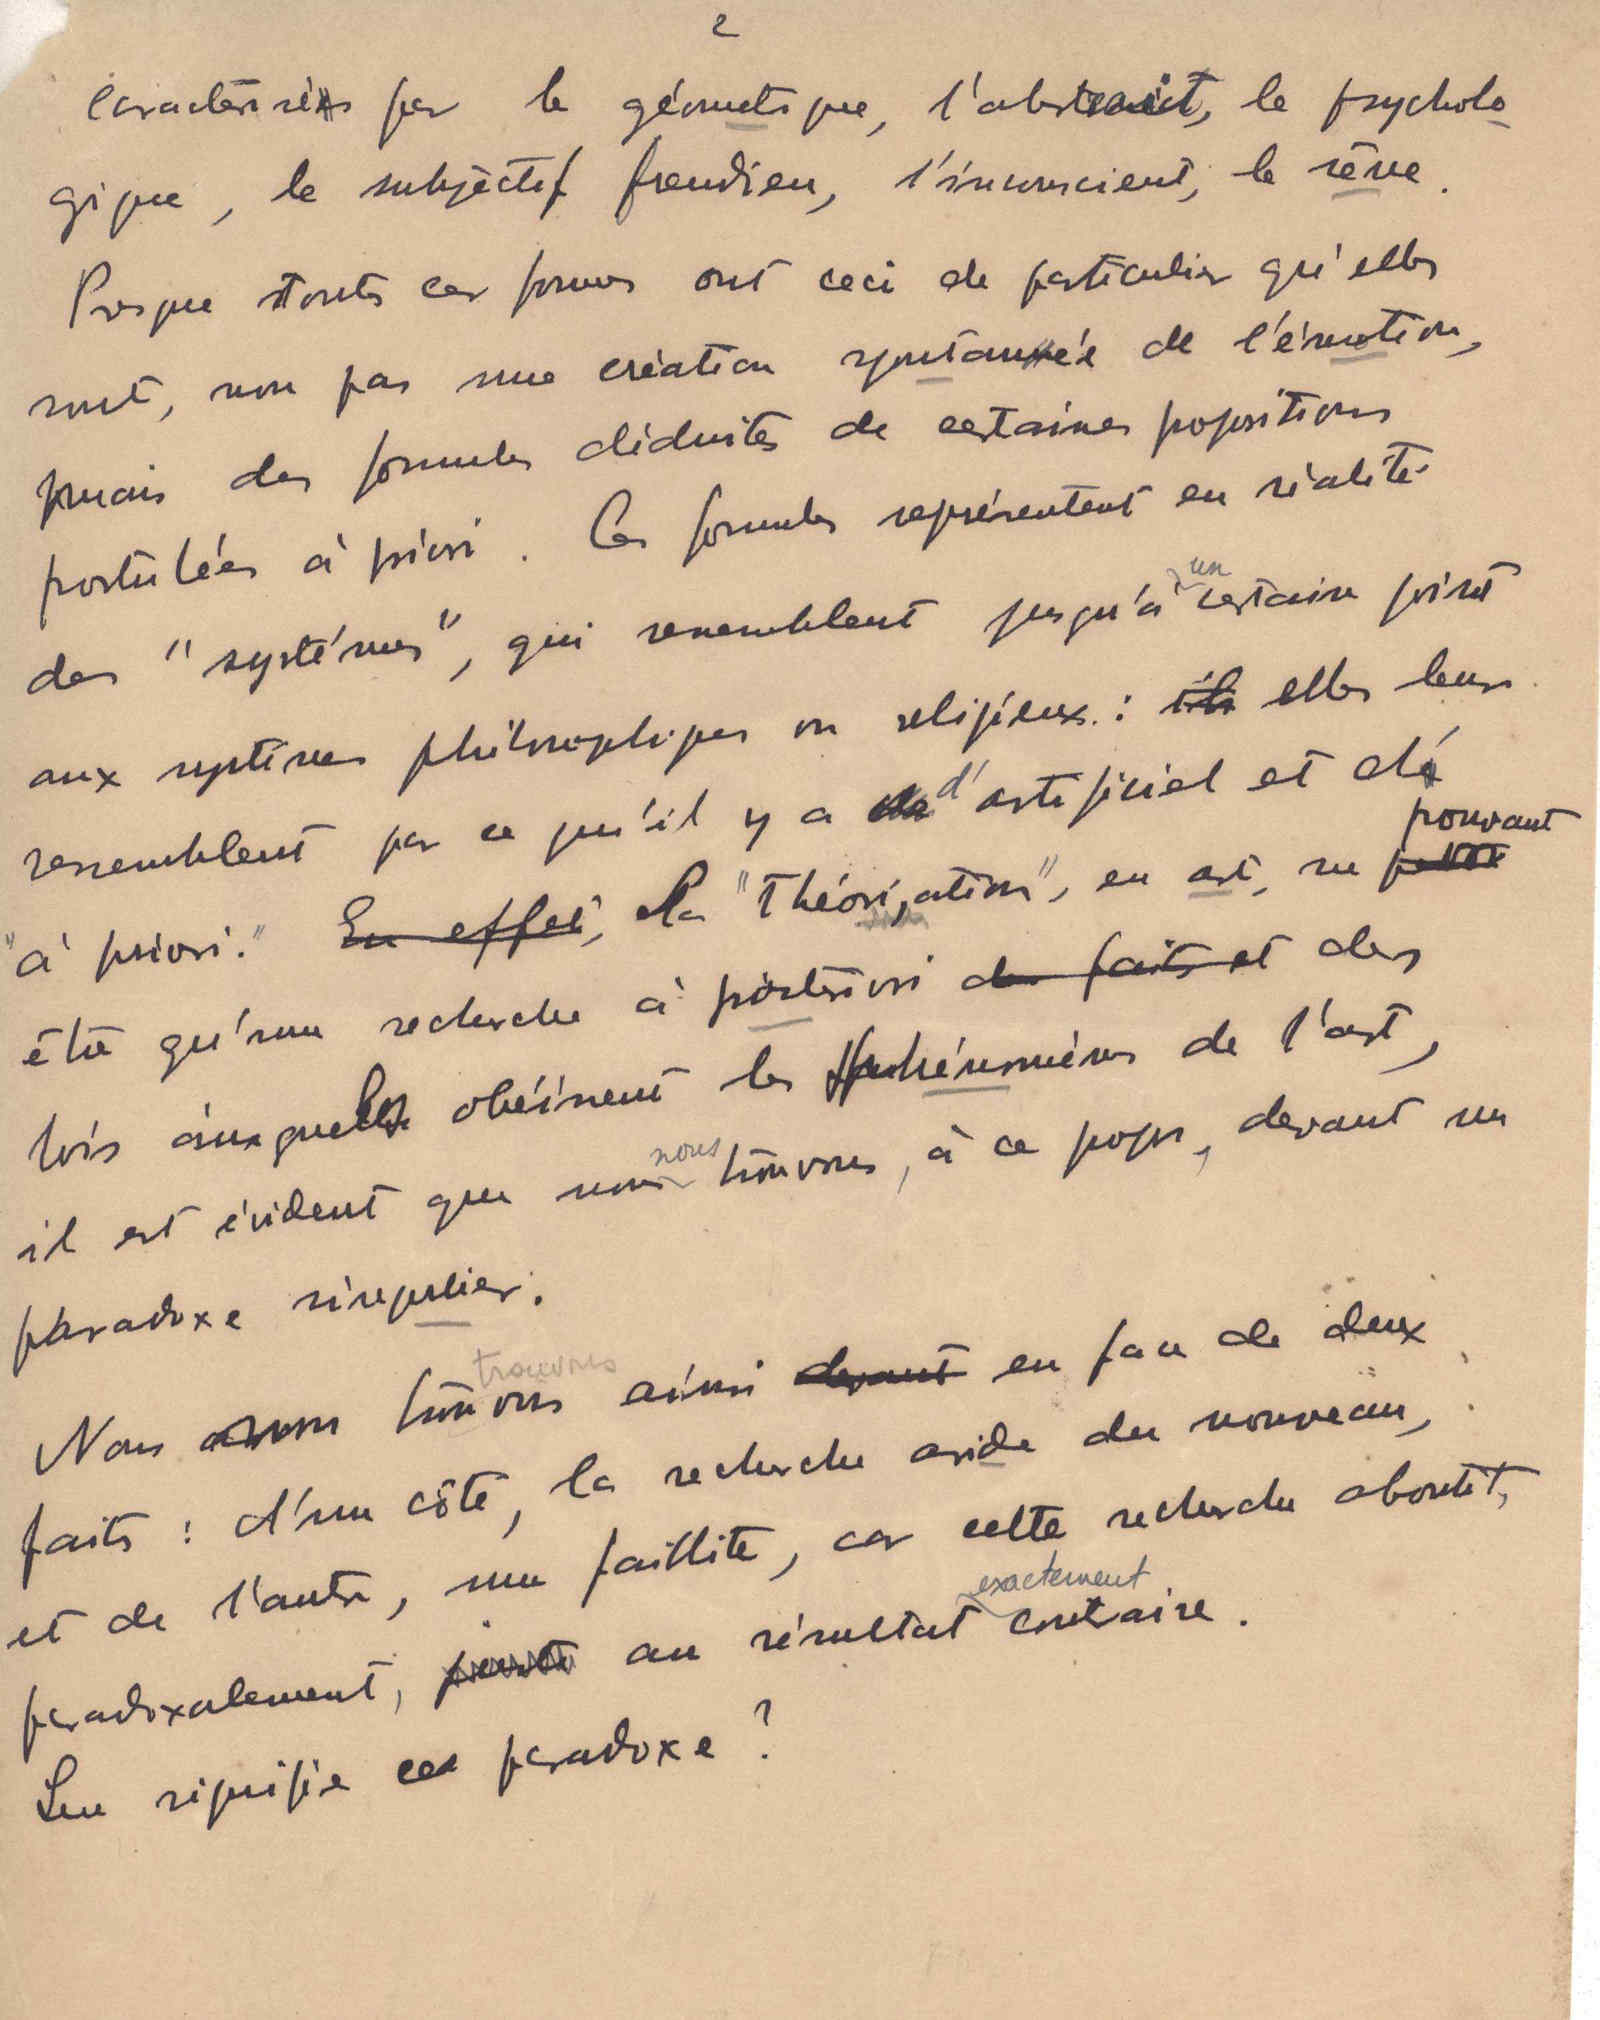 2
caractérisés par le géometrique, l'abstrait, le psycholo
gique, le subjectif freudien, l'inconscient, le rêve.
Presque toutes ces formes ont ceci de particulier qu'elles
sont, non pas une création spontannée de l'émotion,
mais des formules déduites de certaines propositions
postulées à priori. Ces formules représentent en réalité
des "systémes", qui ressemblent jusqu'à un certain point
aux systèmes philosophiques ou religieux : ils elles leur
ressemblent par ce qu'il y a de d'artificiel et d'
"à priori." En effet, La "Théorisation", en art, ne pouvant
être qu'une recherche à postériori des faits et des
lois auxquelles obéissent les phénomènes de l'art,
il est évident que nous nous trouvons, à ce propos, devant un
paradoxe singulier.
Nous trouvons trouvons ainsi devant en face de deux
faits : d'un côté, la recherche avide du nouveau,
et de l'autre, une faillite, car cette recherche aboutit,
paradoxalement, au résultat exactement contraire.
Que signifie ce paradoxe ?